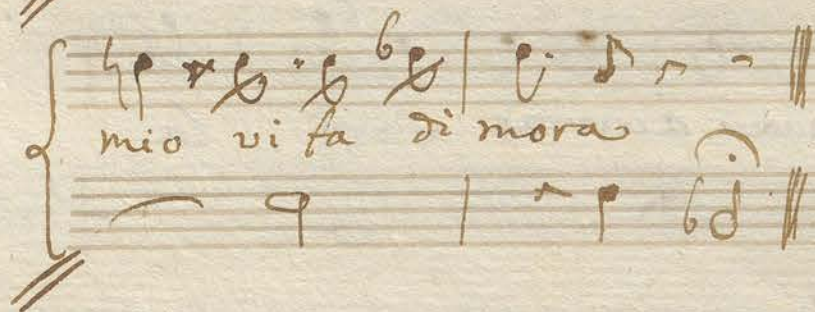 mio vi ta di mora